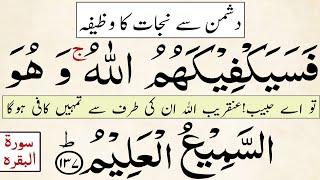 دشمن سے نجات کا وظیفہ
فَسَيَكْفِيكَهُمُ اللّٰهُ ۚ وَ هُوَ
تو اے حبیب! عنقریب اللہ ان کی طرف سے تمہیں کافی ہوگا
السَّمِيْعُ الْعَلِيْمُ ؕ ﴿۱۳۷﴾
سورۃ
البقرہ